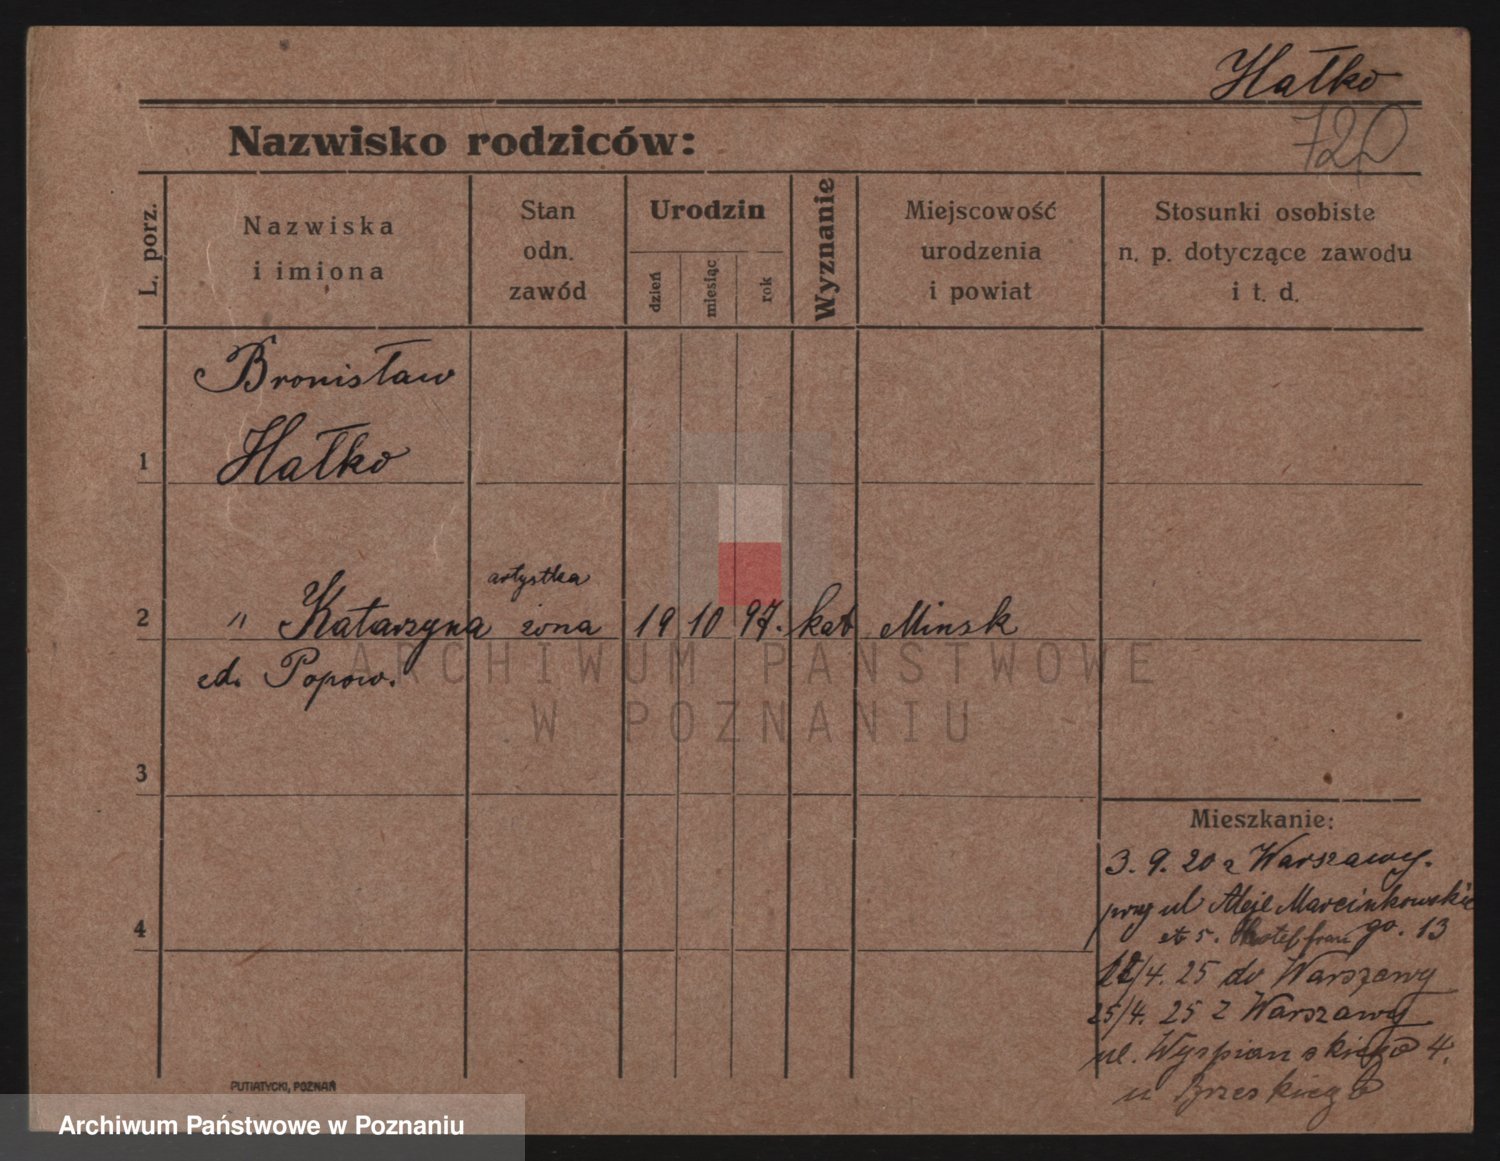 Hałko
720
Nazwisko rodziców:
L. porz.
Nazwiska
i imiona
Stan
odn.
zawód
Urodzin
dzień
miesiąc
rok
Wyznanie
Miejscowość
urodzenia
i powiat
Stosunki osobiste
n. p. dotyczące zawodu
i t. d.
Bronisław
1 Hałko
artystka
2 " Katarzyna żona 19 10 97. kat Minsk
zd. Popow.
ARCHIWUM PAŃSTWOWE
W POZNANIU
3
Mieszkanie:
3. 9. 20 z Warszawy.
przy ul Aleje Marcinkowskie
go. 13
4
hotel fran
/4. 25 do Warszawy
25/4. 25 z Warszawy
ul. Wyspianskiego 4.
u Brzeskiego
PUTIATYCKI, POZNAŃ
Archiwum Państwowe w Poznaniu